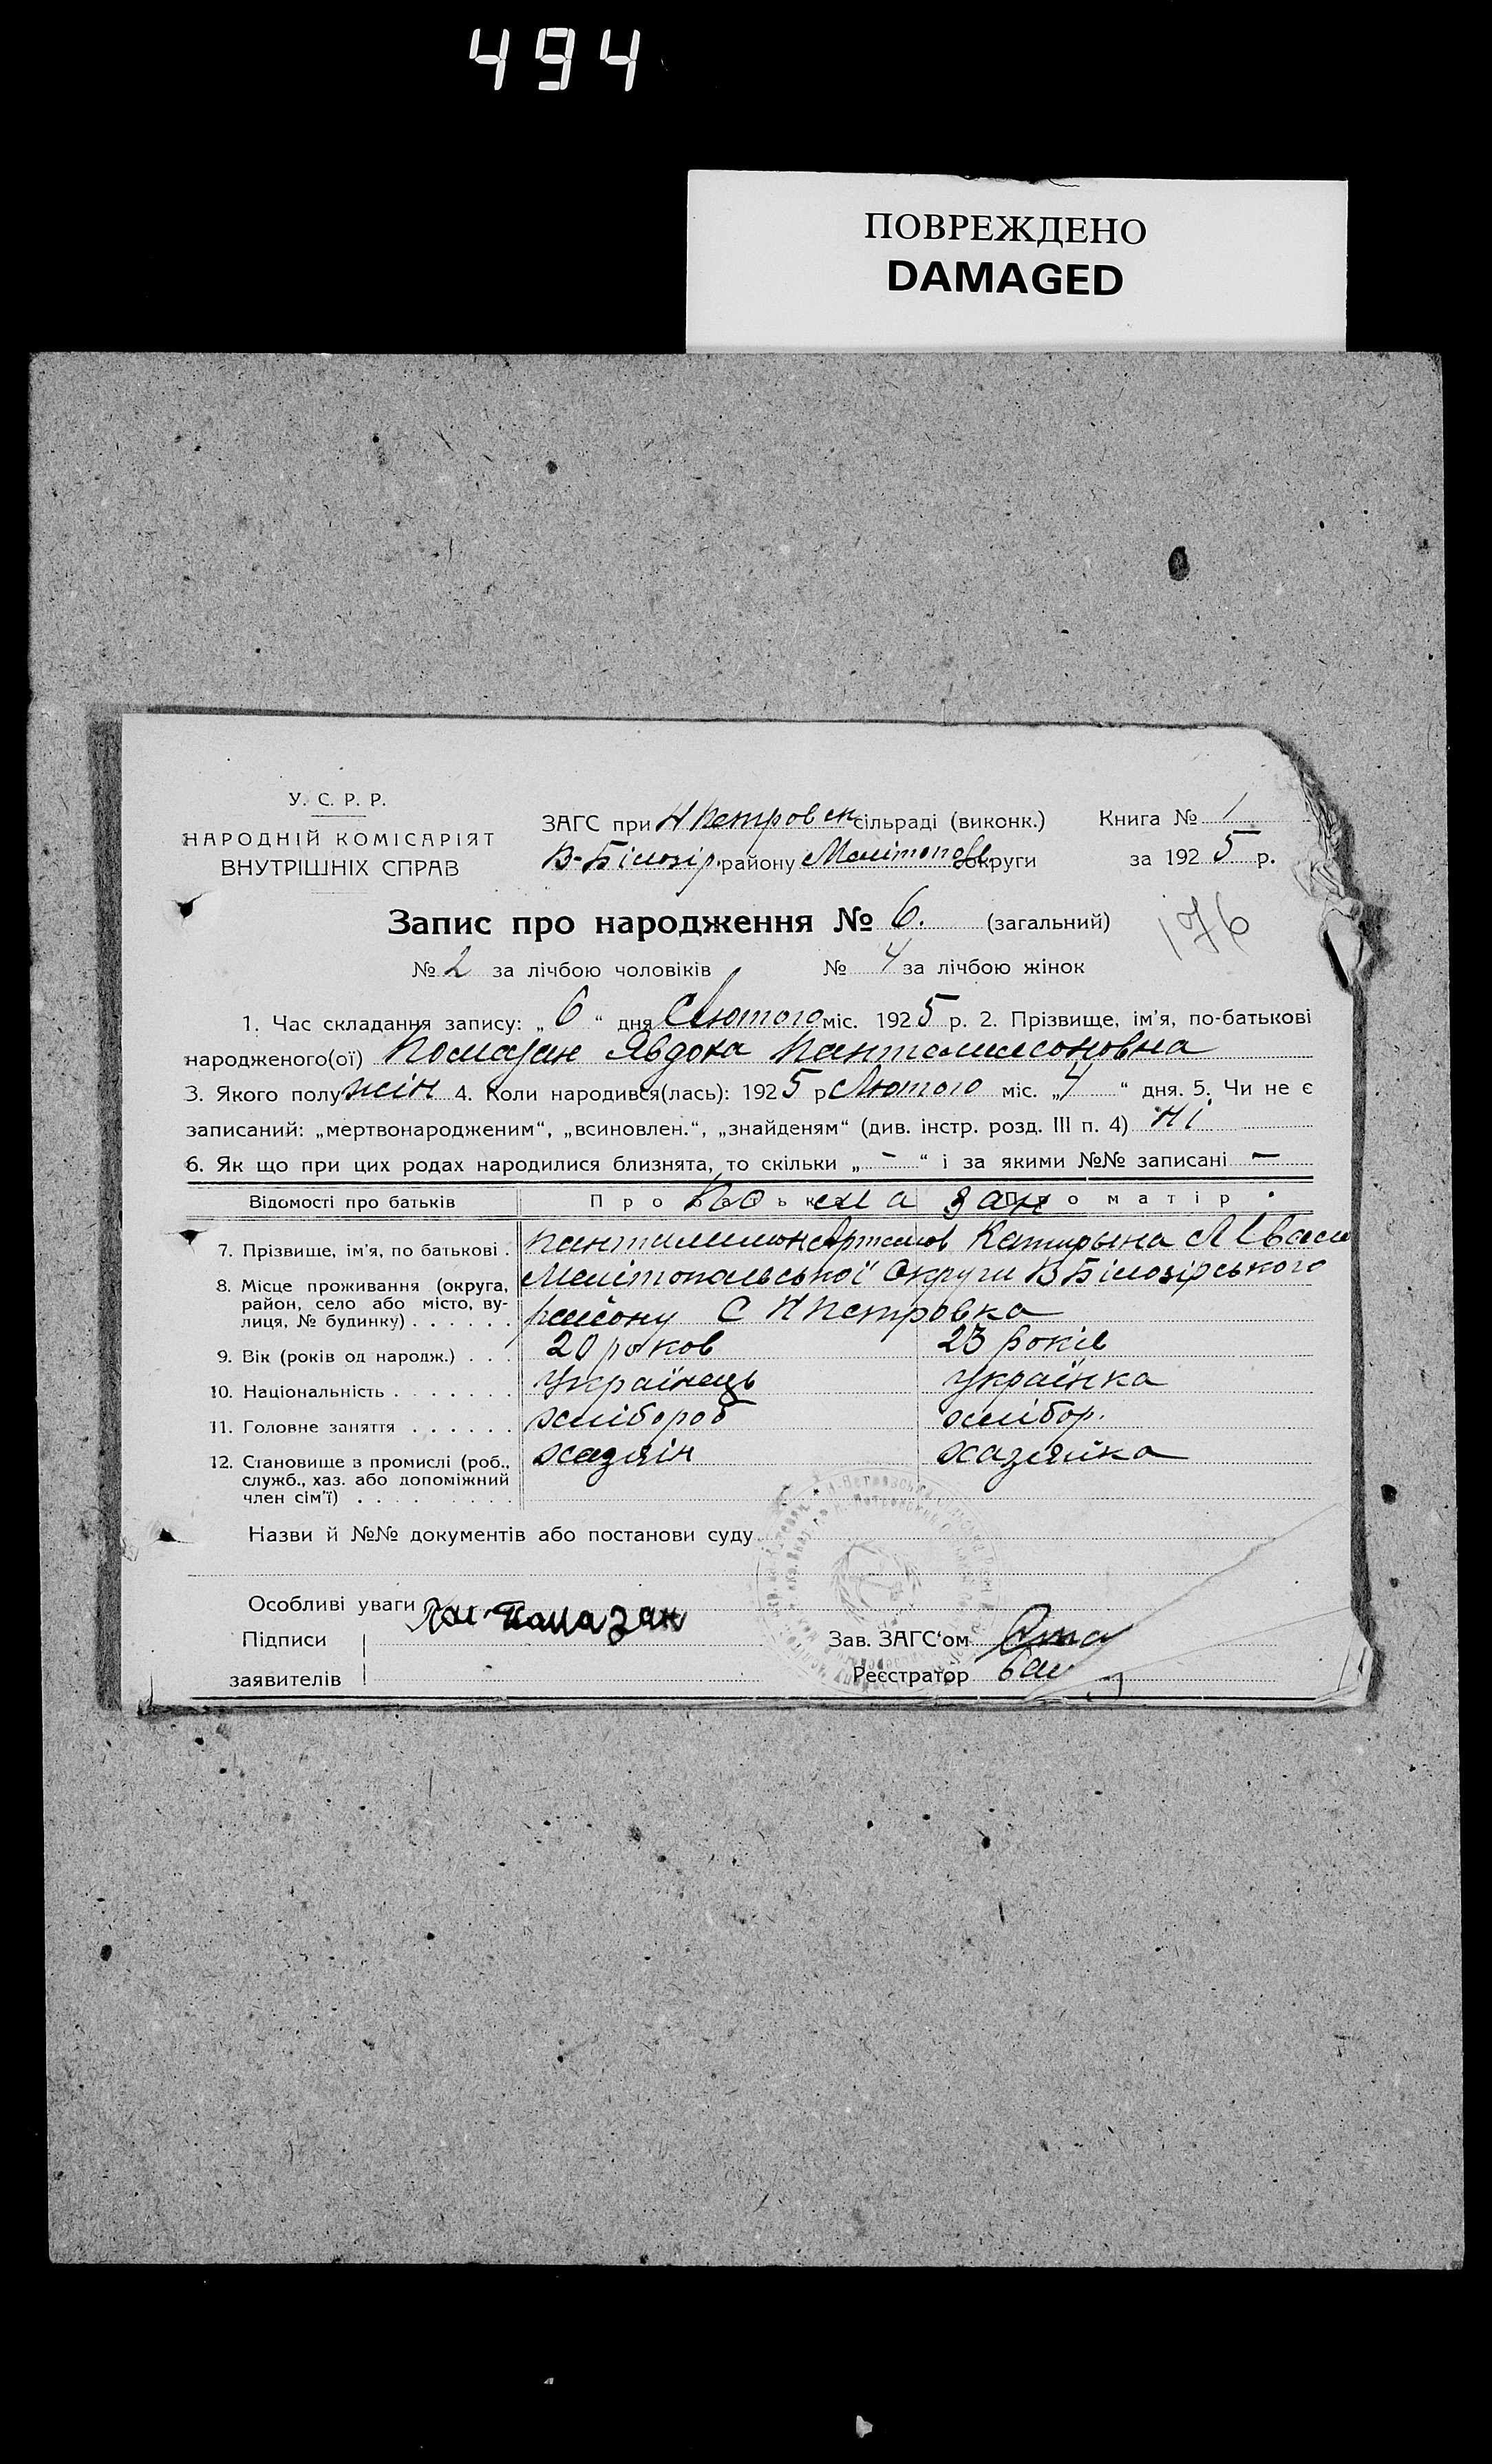 494
ПОВРЕЖДЕНО
DAMAGED
У. С. Р. Р.
НАРОДНІЙ КОМІСАРІЯТ
ВНУТРІШНІХ СПРАВ
ЗАГС при Н Петровск сільраді (виконк.)
В-Білозір. району Мелітопов округи
Книга № 1
за 1925 р.
Запис про народження № 6. (загальний)
176
№ 2 за лічбою чоловіків № 4 за лічбою жінок
1. Час складання запису: „ 6 “ дня Лютого міс. 1925 р. 2. Прізвище, ім'я, по-батькові
народженого(ої) Помазан Явдока Пантелимоновна
3. Якого полу жін 4. Коли народився(лась): 1925 р Лютого міс. „ 4 “ дня. 5. Чи не є
записаний: „мертвонародженим“, „всиновлен.“, „знайденям“ (див. інстр. розд. III п. 4) Ні
6. Як що при цих родах народилися близнята, то скільки „ - “ і за якими №№ записані —
Відомості про батьків Про батька Про матір
Помазан
7. Прізвище, ім'я, по батькові . Пантилимон Артемов Катирына
8. Місце проживання (округа, район, село або місто, вулиця, № будинку) . . . . . . Мелітопальської Округи В Білозірського
району С Н Петровка
9. Вік (років од народж.) . . . 20 роков 23 Років
10. Національність . . . . . . . Українець Українка
11. Головне заняття . . . . . . хлібороб хлібор.
12. Становище в промислі (роб., служб., хаз. або допоміжний член сім'ї) . . . . . . . . хазяін хазяйка
Назви й №№ документів або постанови суду
Особливі уваги
Помазан
Підписи
заявителів
Зав. ЗАГС'ом
Реєстратор